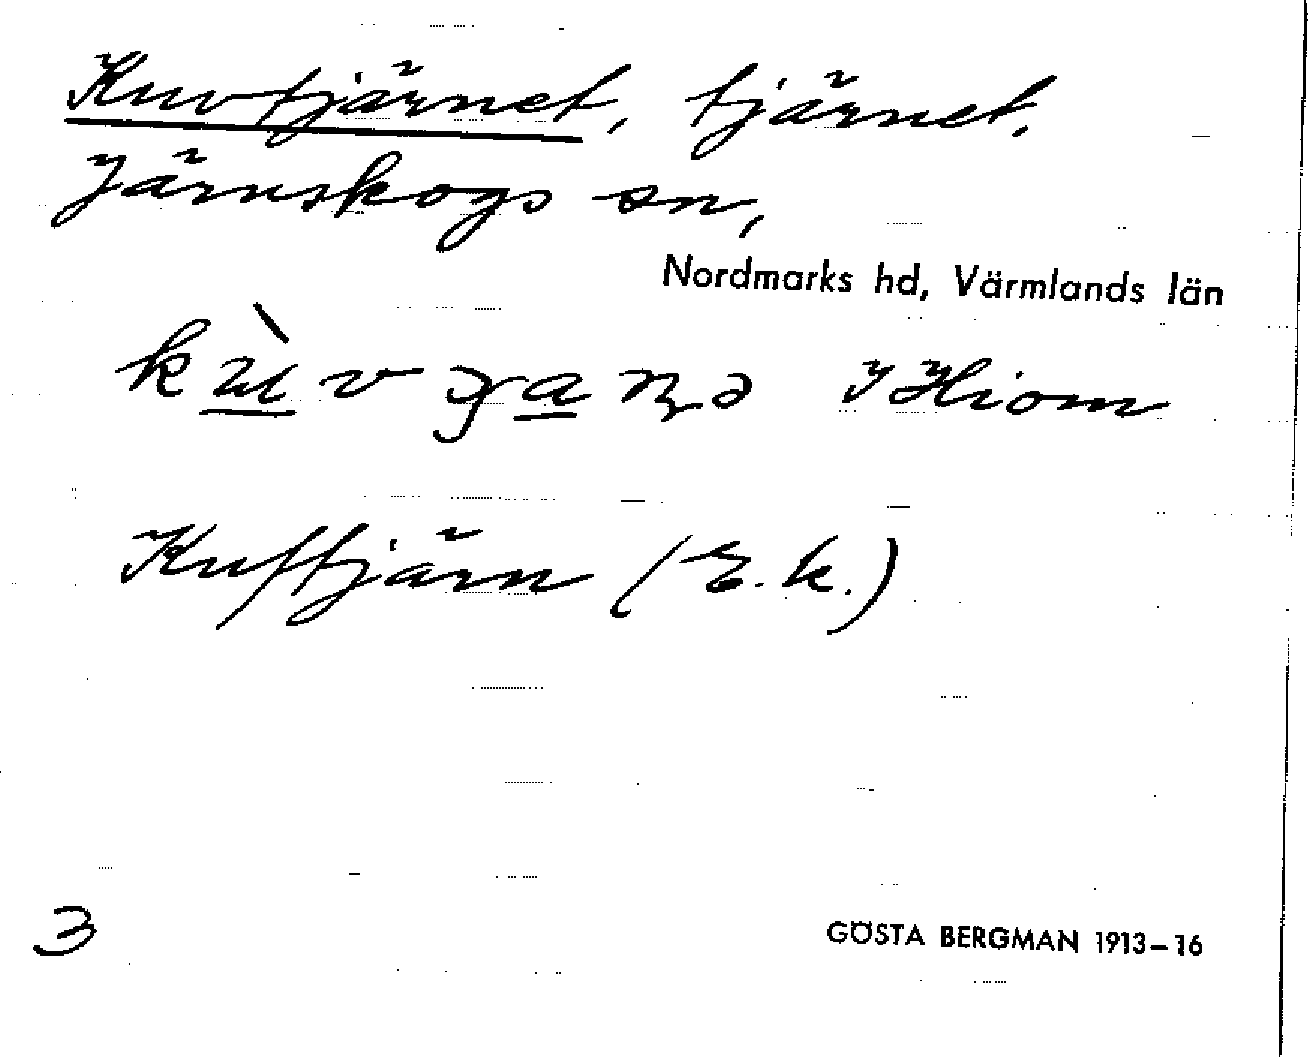 Kuvtjärnet, tjärnet.
Järnskogs sn,
Nordmarks hd, Värmlands län
Kuftjärn (E.k.)
3
GÖSTA BERGMAN 1913–16